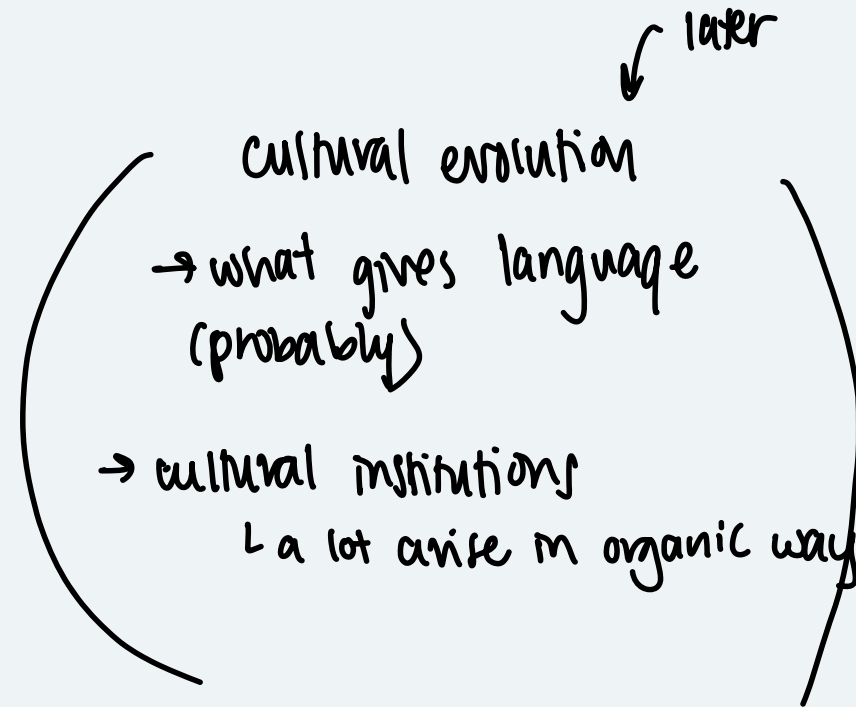 later
cultural evolution
→ what gives language
(probably)
→ cultural institutions
└ a lot arise in organic way